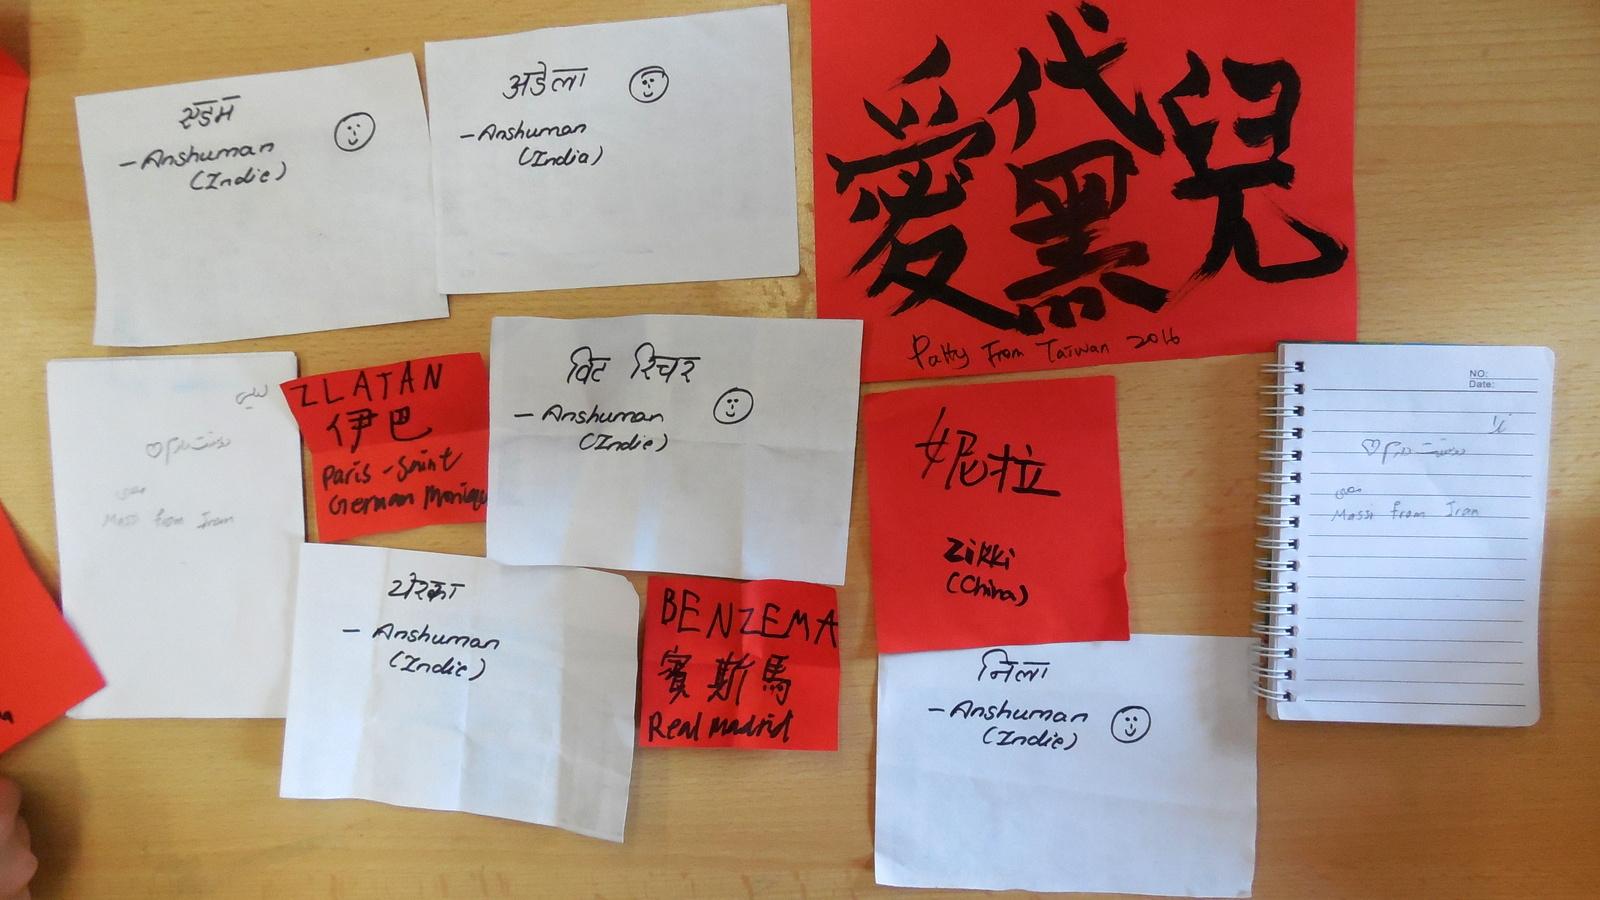 एडम
- Anshuman
(Indie)
अडेला
- Anshuman
(India)
愛代黑兒
Patty From Taiwan 2016
دوستت دارم
Massi from Iran
ZLATAN
伊巴
Paris-Saint
German
विट रिचर
- Anshuman
(Indie)
妮拉
Zikki
(China)
NO:
Date:
دوستت دارم
Massi from Iran
- Anshuman
(Indie)
BENZEMA
賓斯馬
Real Madrid
निला
- Anshuman
(Indie)